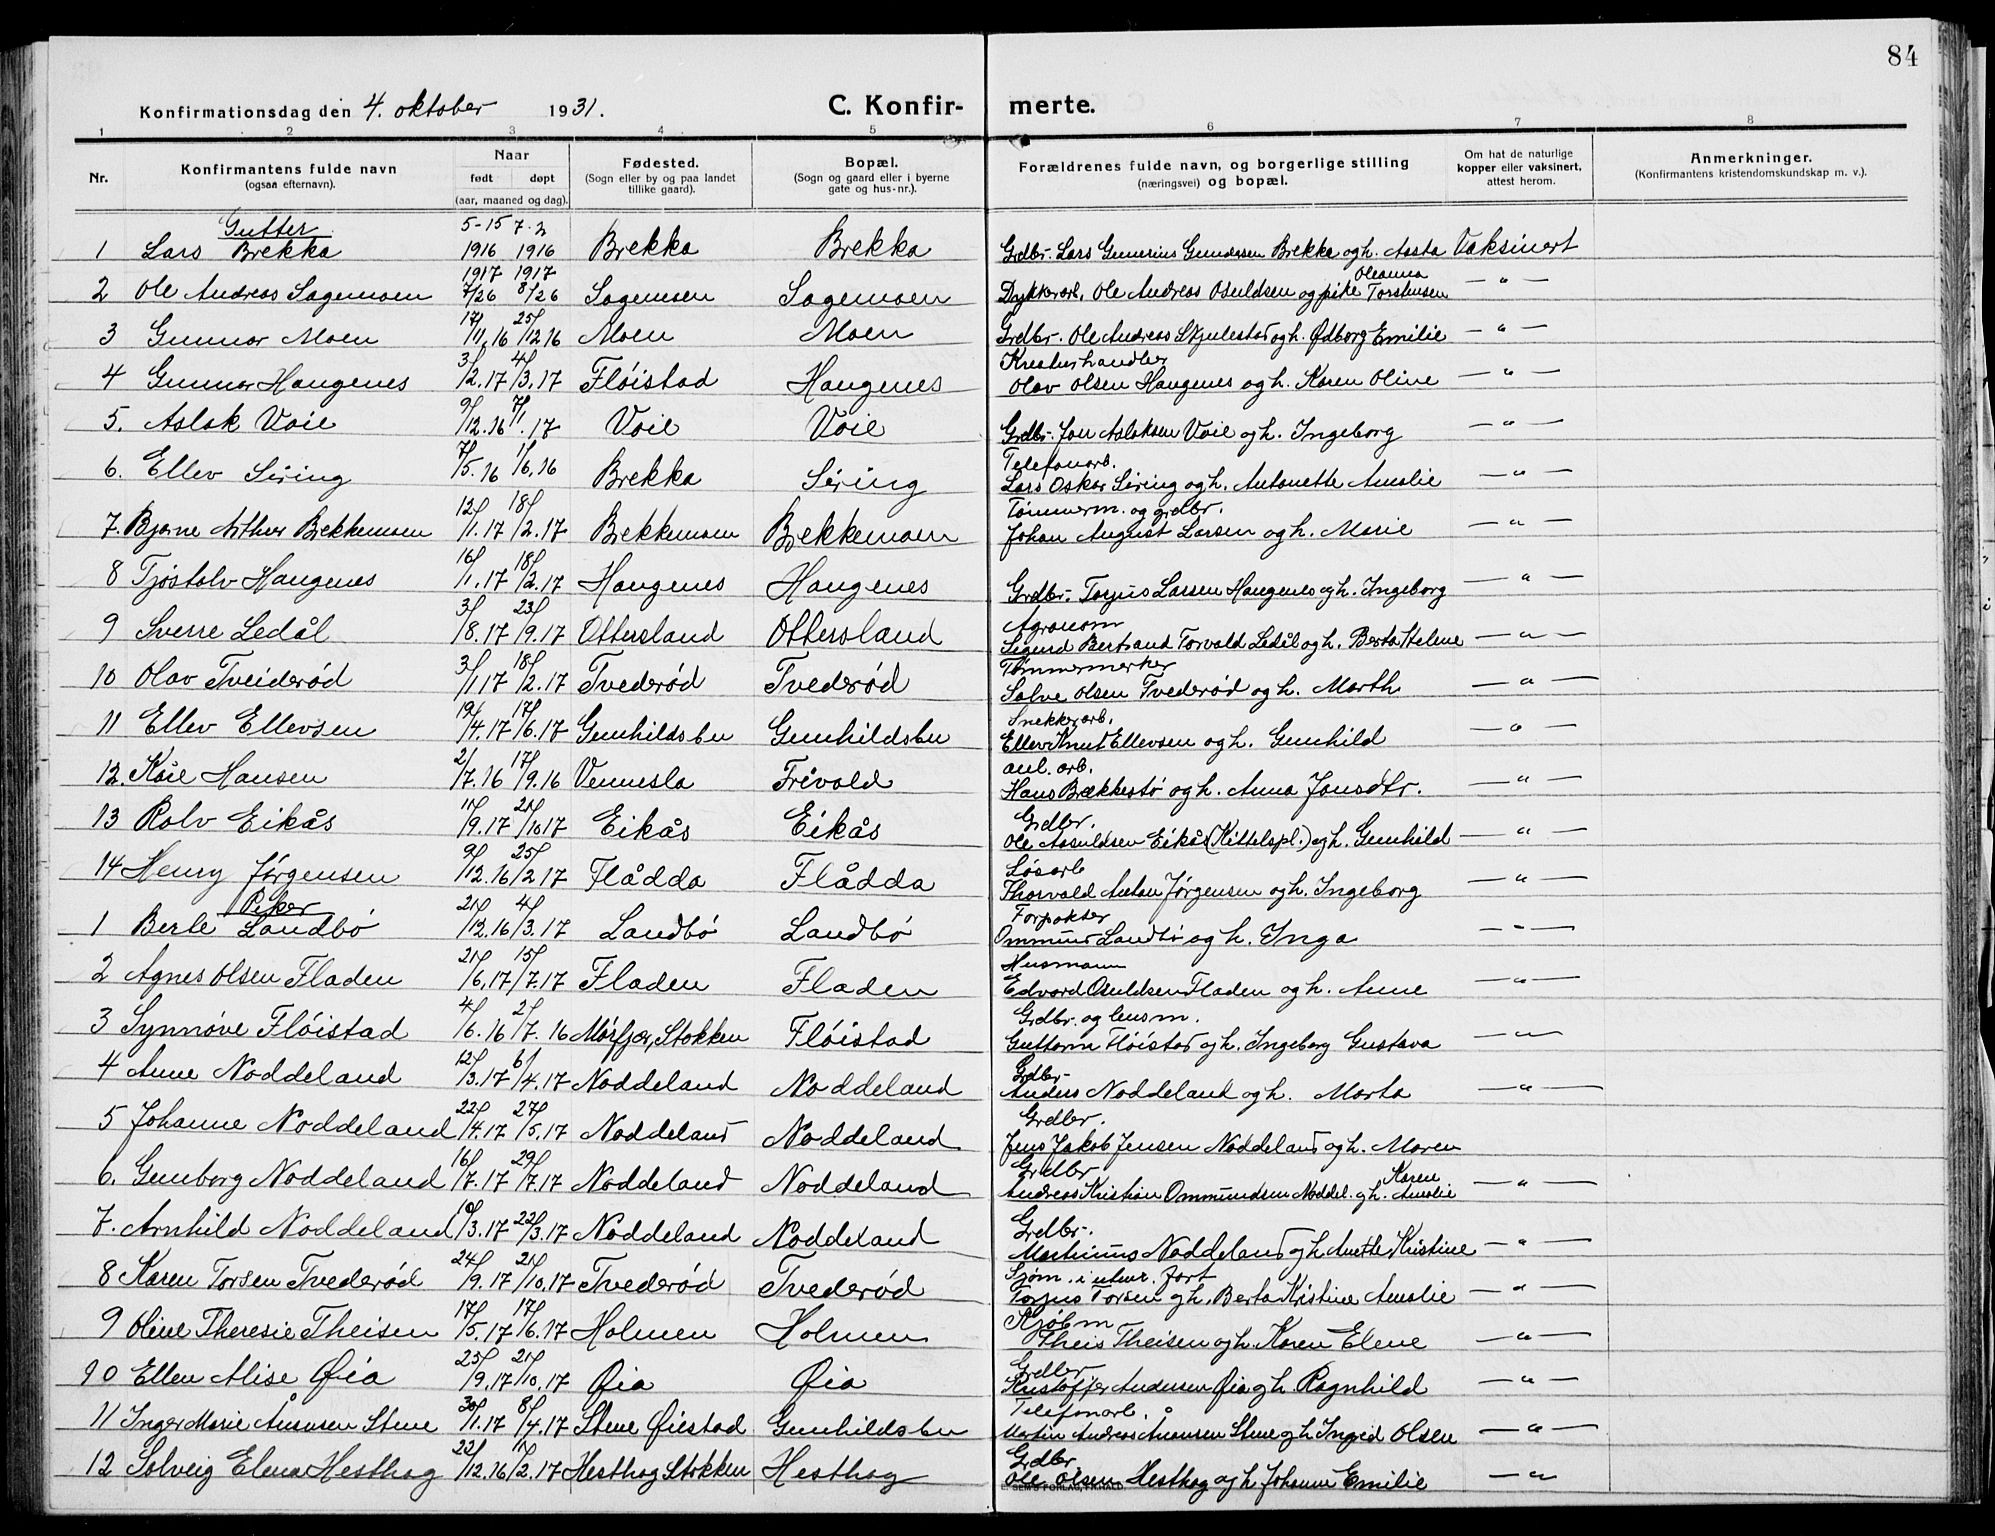 84
Konfirmationsdag den 4. oktober 1931.
C. Konfir- merte.
1 2 3 4 5 6 7 8
Nr. Konfirmantens fulde navn (ogsaa efternavn). Naar født døpt (aar, maaned og dag). Fødested. (Sogn eller by og paa landet tillike gaard). Bopæl. (Sogn og gaard eller i byerne gate og hus-nr.). Forældrenes fulde navn, og borgerlige stilling (næringsvei) og bopæl. Om hat de naturlige kopper eller vaksinert, attest herom. Anmerkninger. (Konfirmantens kristendomskundskap m. v.).
Gutter
1 Lars Brekka 5-15 1916 7-2 1916 Brekka Brekka Grdbr. Lars Gunerius Gundersen Brekka og h. Aasta Vaksinert
2 Ole Andreas Sagemoen 1917 7/26 1917 8/26 Sagemoen Sagemoen Dykkerarb. Ole Andreas Osuldsen og pike Oleanna Torshusen — " —
3 Gunnar Moen 17/11.16 25/12 16 Moen Moen Grdbr. Ole Andreas Skjulestad og h. Ødborg Emilie — " —
4 Gunnar Haugenes 3/2.17 4/3.17 Flöistad Haugenes Kreaturhandler Olav Olsen Haugenes og h. Karen Oline — " —
5. Aslak Voie 9/12.16 7/1.17 Voie Voie Grdbr. Jon Aslaksen Voie og h. Ingeborg — " —
6. Ellev Siring 7/5.16 1/6.16 Brekka Siring Telefonarb. Lars Oskar Siring og h. Antonette Amalie — " —
7. Bjarne Arthur Bekkemoen 12/1.17 18/2.17 Bekkemoen Bekkemoen Tömmerm. og grdbr. Johan August Larsen og h. Marie — " —
8 Tjöstolv Haugenes 16/1.17 18/2.17 Haugenes Haugenes Grdbr. Torjus Larsen Haugenes og h. Ingeborg — " —
9 Sverre Ledål 3/8.17 23/9.17 Ottersland Ottersland Agronom Sigurd Bertrand Torvald Ledål og h. Berta Helene — " —
10 Olav Tveiderød 3/1 17 18/2.17 Tvederød Tvederød Tømmermerker Salve Olsen Tvederød og h. Marth — " —
11 Ellev Ellevsen 19/4.17 17/6.17 Gunhildsbu Gunhildsbu Snekkerarb. Ellev Knut Ellevsen og h. Gunhild — " —
12. Kåre Hansen 2/7.16 17/9.16 Vennesla Frivold anl. arb. Hans Brækkestø og h. Anna Jonsdtr. — " —
13 Rolv Eikås 11/9.17 21/10 17 Eikås Eikås Grdbr. Ole Aasuldsen Eikås (Kittelspl.) og h. Gunhild — " —
14 Henry Jörgensen 9/12.16 25/2.17 Flådda Flådda Løsarb Thorvald Anton Jörgensen og h. Ingeborg — " —
Piker
1 Berle Landbö 21/12.16 4/3.17 Landbö Landbö Forpakter Ommund Landbö og h. Inga — " —
2 Agnes Olsen Fladen 21/6.17 15/7.17 Fladen Fladen Husmann Edvard Osuldsen Fladen og h. Anne — " —
3 Synnöve Flöistad 4/6.16 2/7.16 Mörfjær, Stokken Flöistad Grdbr. og lensm. Guttorm Flöistad og h. Ingeborg Gustava — " —
4 Anne Noddeland 12/3.17 6/4.17 Noddeland Noddeland Grdbr. Anders Noddeland og h. Marta — " —
5 Johanne Noddeland 22/4.17 27/5.17 Noddeland Noddeland Grdbr. Jens Jakob Jensen Noddeland og h. Maren
6. Gunborg Noddeland 16/7.17 29/7.17 Noddeland Noddeland Grdbr Andreas Kristian Ommundsen Noddel. og h. Karen Amalie — " —
7. Arnhild Noddeland 10/3.17 22/3.17 Noddeland Noddeland Grdbr. Martinius Noddeland og h Anette Kristine — " —
8 Karen Torsen Tvederød 24/9.17 21/10.17 Tvederød Tvederød Sjøm. i utenr. fart Torjus Torsen og h. Berta Kristine Amalie — " —
9 Oline Theresie Theisen 17/5.17 17/6.17 Holmen Holmen Kjöbm Theis Theisen og h. Karen Elene — " —
10 Ellen Alise Øia 23/9.17 21/10.17 Øia Øia Grdbr. Kristoffer Andersen Øia og h Ragnhild — " —
11 Inger Marie Aanonsen Stene 30/1.17 8/4.17 Stene Øiestad Gunhildsbu Telefonarb. Martin Andreas Aanonsen Stene og h Ingrid Olsen — " —
12 Solveig Elena Hesthag 22/12.16 11/2.17 Hesthag Stokken Hesthag Grdbr. Ole Olsen Hesthag og h Johanne Emilie — " —